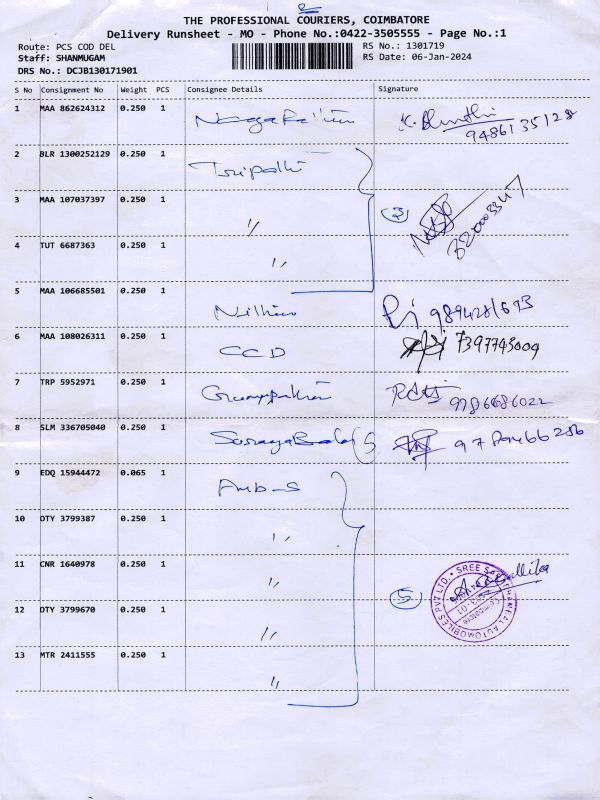 THE PROFESSIONAL COURIERS, COIMBATORE
Delivery Runsheet - MO - Phone No.:0422-3505555 - Page No.:1
Route: PCS COD DEL
RS No.: 1301719
Staff: SHANMUGAM
RS Date: 06-Jan-2024
DRS No.: DCJB130171901
S No Consignment No Weight PCS Consignee Details Signature
1 MAA 862624312 0.250 1
9486135128
2 BLR 1300252129 0.250 1 Tirupathi
3 MAA 107037397 0.250 1 〃 3
4 TUT 6687363 0.250 1 〃
5 MAA 106685501 0.250 1
6 MAA 108026311 0.250 1 CCD 7397743009
7 TRP 5952971 0.250 1
9786686022
8 SLM 336705040 0.250 1
9 EDQ 15944472 0.065 1
10 OTY 3799387 0.250 1 〃
11 CNR 1640978 0.250 1 〃 5
12 OTY 3799670 0.250 1 〃
13 MTR 2411555 0.250 1 〃
AUTOMOBILES PVT LTD. * SREE
Coimbatore